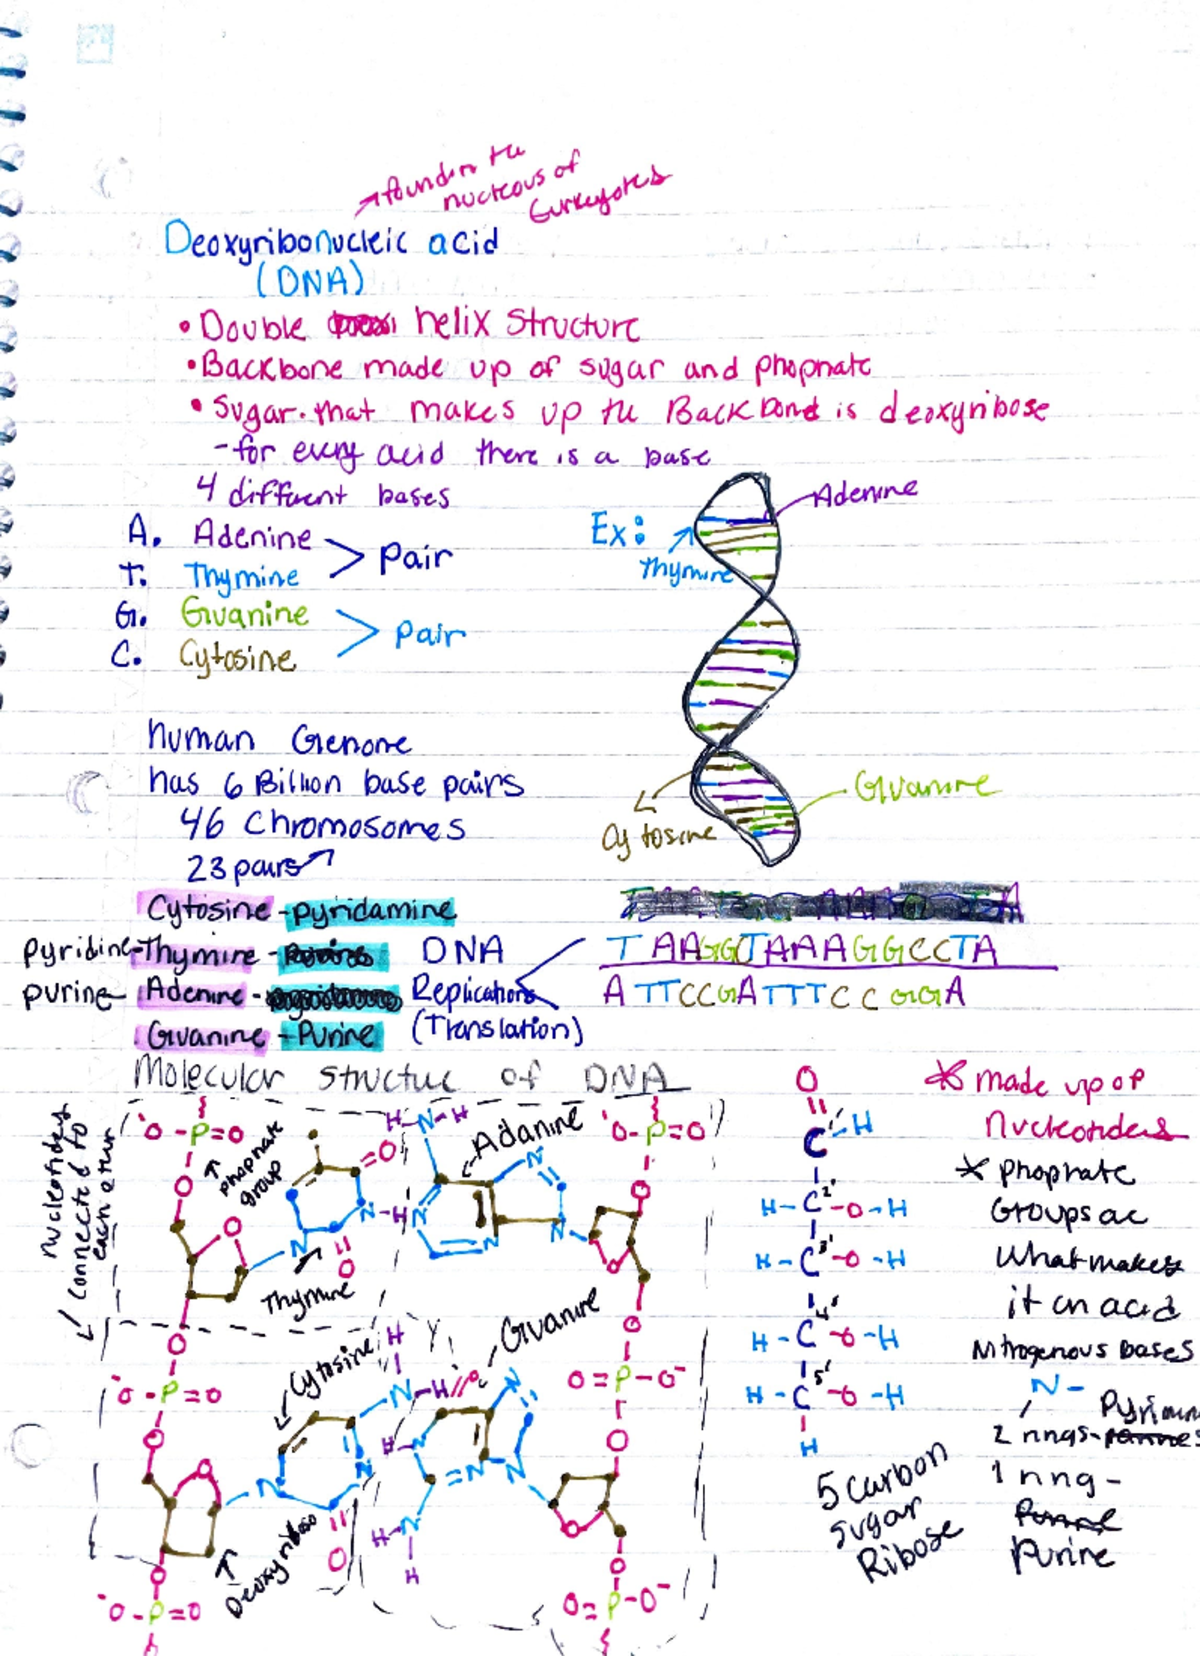 found in the
nucleous of
Eurkeyotes
Deoxyribonucleic acid
(DNA)
• Double helix structure
• Backbone made up of sugar and phophate
• Sugar that makes up the Backbond is deoxyribose
- for every acid there is a base
4 different bases
A. Adenine
T. Thymine
> Pair
G. Guanine
C. Cytosine
> Pair
Ex:
Adenine
Thymine
Cytosine
Guanine
human Genone
has 6 Billion base pairs
46 Chromosomes
23 pairs
Cytosine - pyridamine
pyridine - Thymine -
purine - Adenine -
Guanine - Purine
DNA
Replication
(Translation)
T AAGGCTAAAGGCCTA
A TTCCGATTTCCGGA
Molecular structue of DNA
nucleotides
connected to
each other
phophate
group
Thymine
Adanine
Cytosine
Guanine
Deoxyriboso
-O-P=O
O-P=O
-O-P=O
O=P-O-
-O-P=O
O=P-O-
H-N-H
N-H
O
C-H
H-C2'-O-H
H-C3'-O-H
H-C4'-O-H
H-C5'-O-H
H
5 carbon
sugar
Ribose
* made up of
* phophate
Groups ac
What makes
it an acid
Nitrogenous bases
N-
2 rings-
1 ring-
Purine